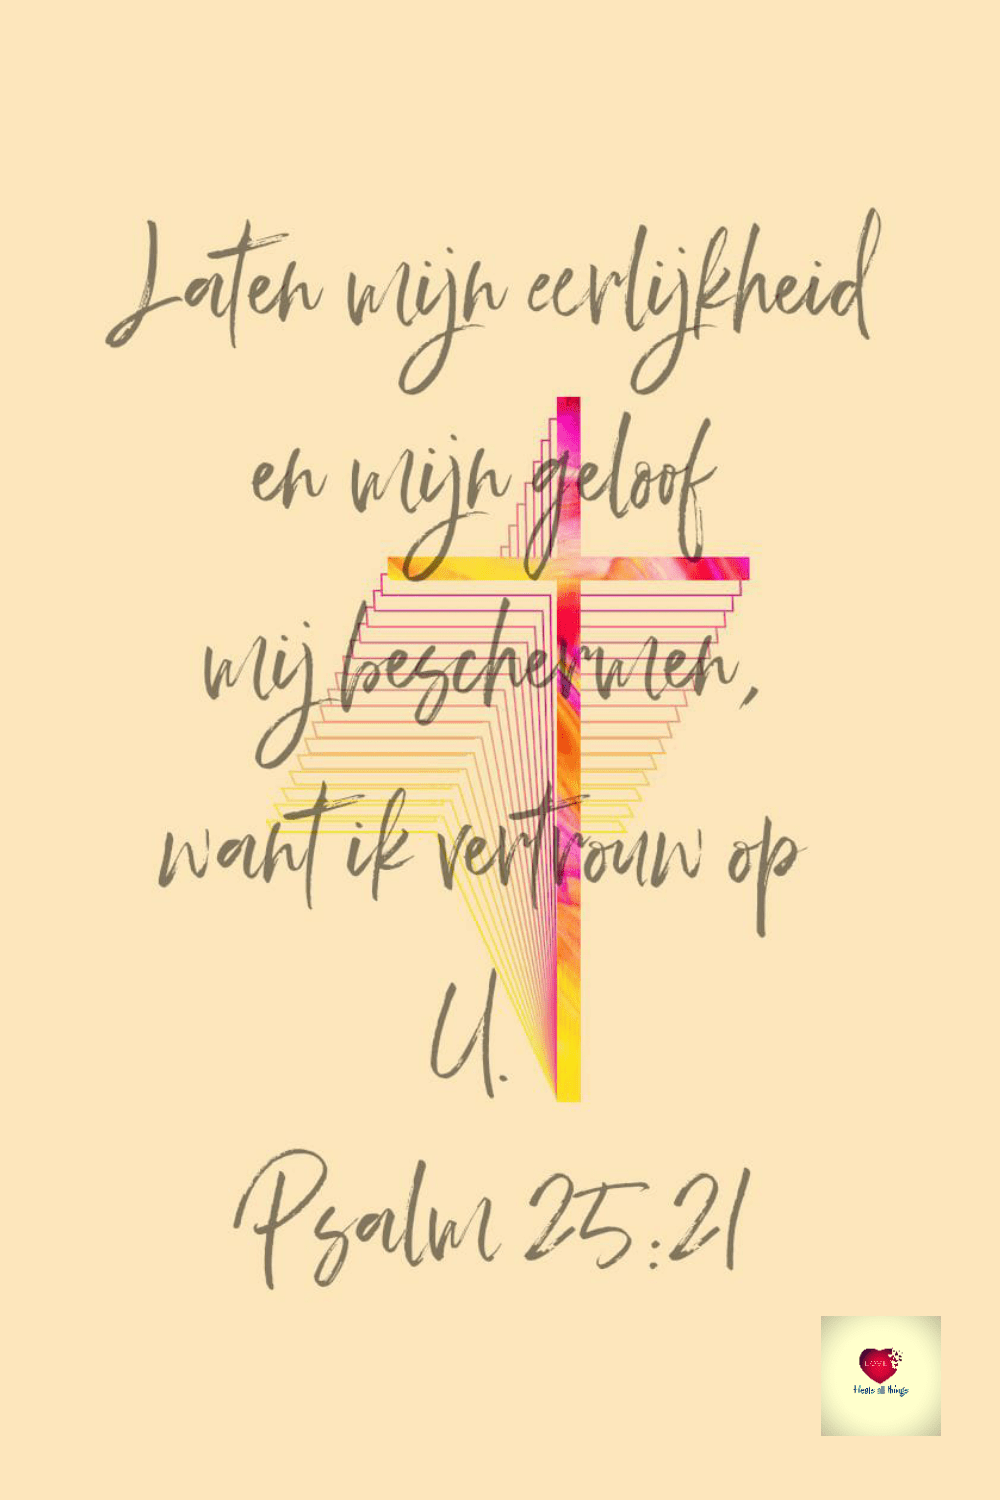 Laten mijn eerlijkheid
en mijn geloof
mij beschermen,
want ik vertrouw op
U.
Psalm 25:21
LOVE
Heals all things